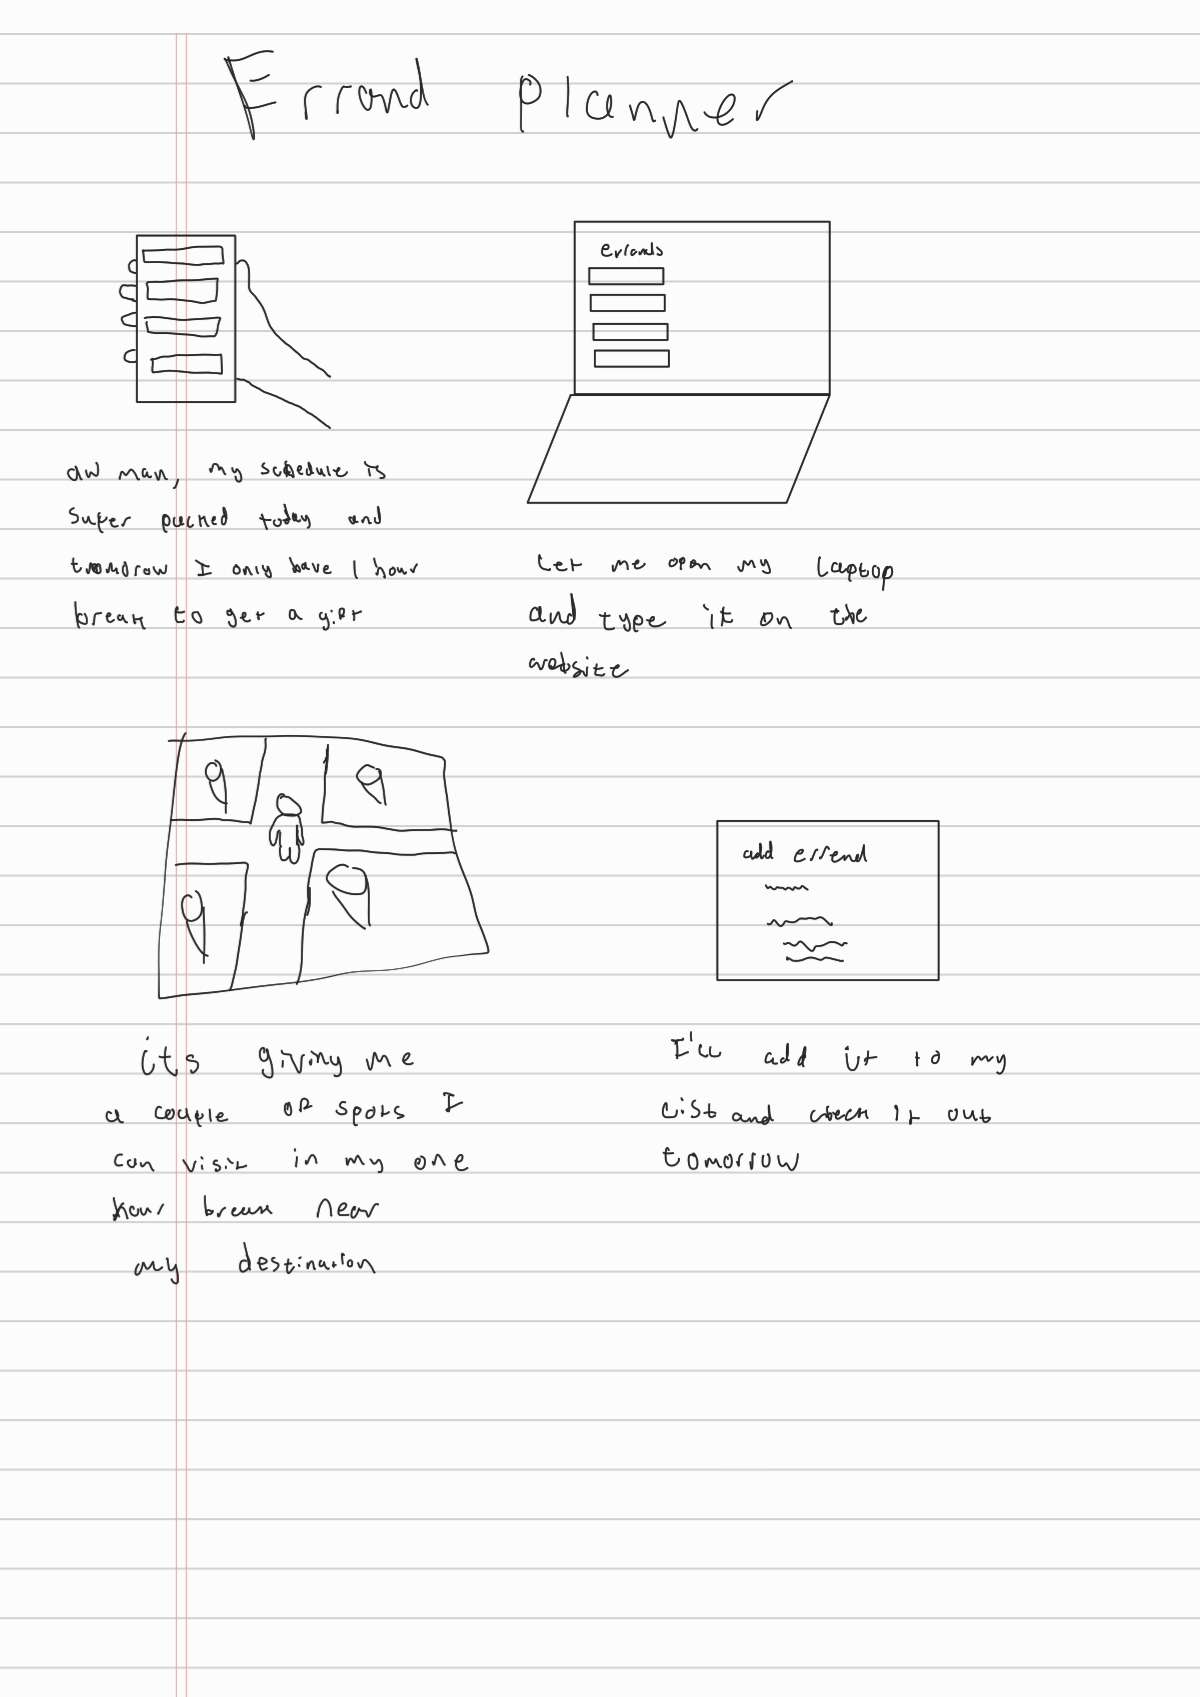 Errand planner
aw man, my schedule is
super packed today and
tomorrow I only have 1 hour
break to get a gift
errands
Let me open my laptop
and type it on the
website
its giving me
a couple of spots I
can visit in my one
hour break near
my destination
add errend
I'll add it to my
list and check it out
tomorrow